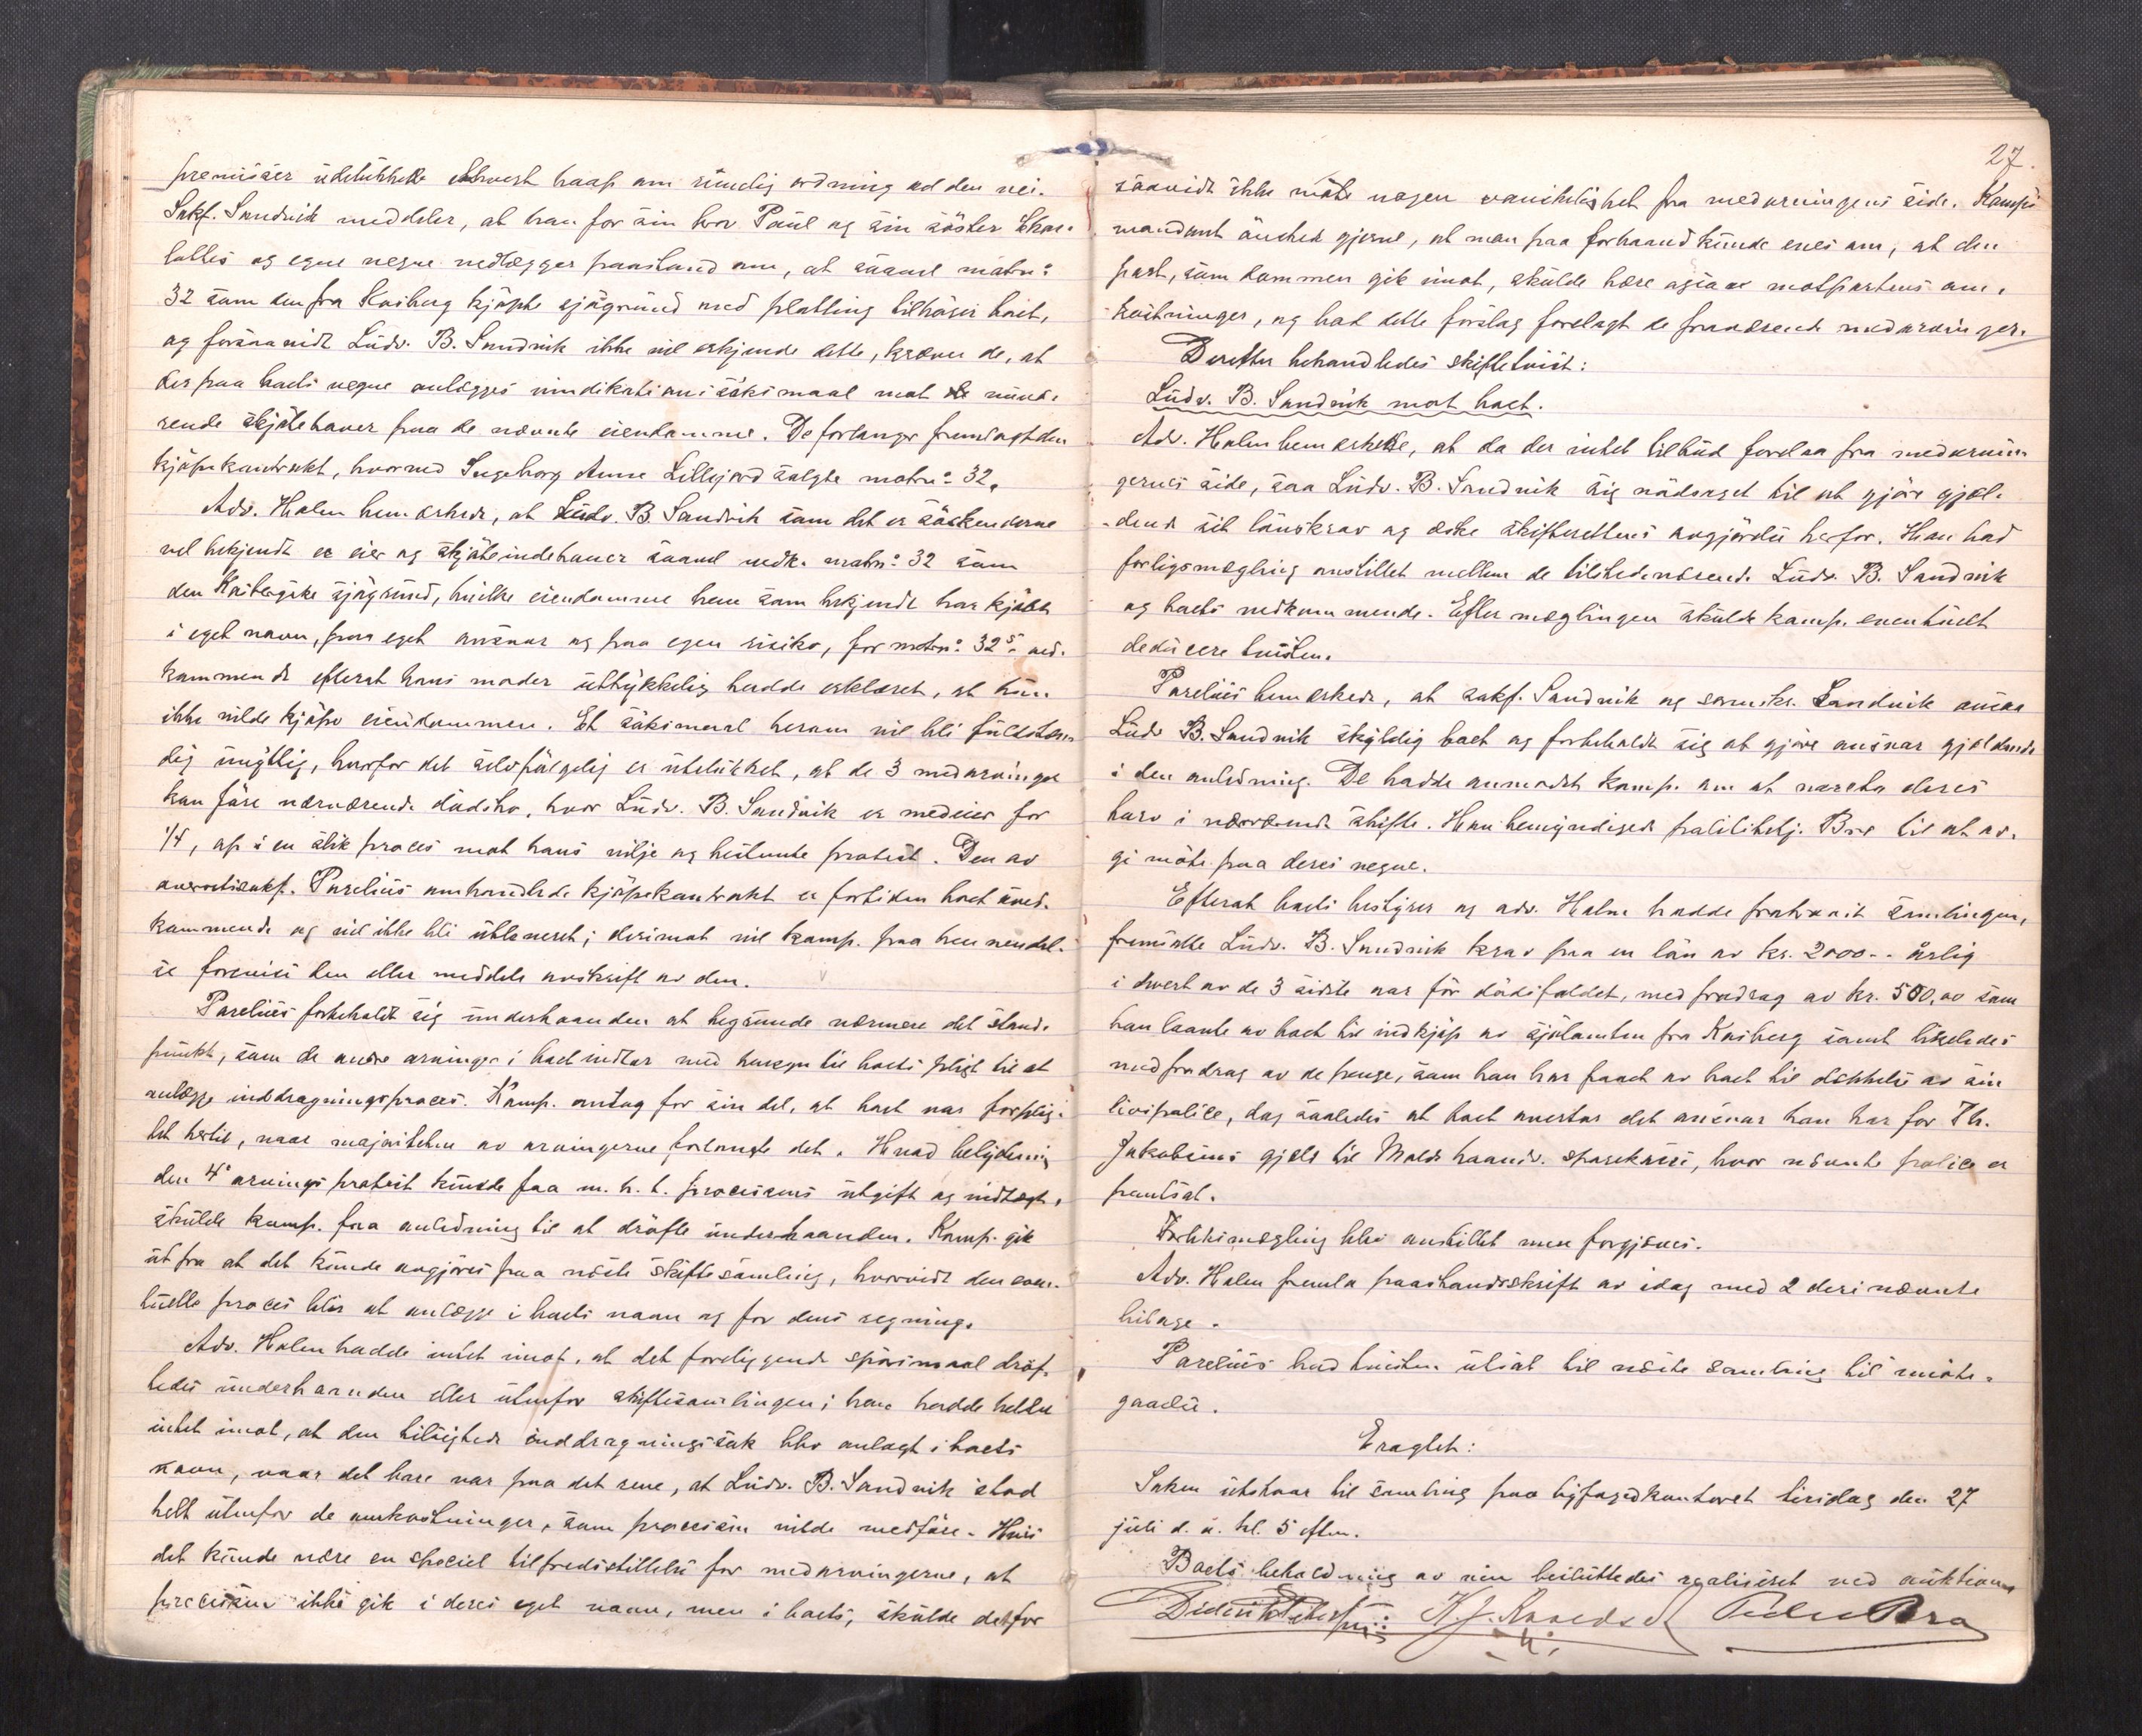 premisser utelukkede ethvert haap om rimelig ordning ad den vei.
Sakf. Sandvik meddeler, at han for sin bror Paul og sin søster Char-
lottes og egne vegne nedlægger paastand om, at saavel matr:
32 som den fra Kaiberg kjøpte sjøgrund med platting tilhører boet,
og forsaavidt Ludv. B. Sandvik ikke vil erkjende dette, kræver de, at
der paa boets vegne anlægges vindikationssøksmaal mot de nuvæ-
rende skjøtehaver paa de nævnte eiendomme. De forlanger fremlagt den
kjøpekontrakt, hvorved Ingeborg Anna Lillejord solgte matr: 32.
Adv. Holm bemerkede, at Ludv. B. Sandvik som det er søskenderne
vel bekjendt er eier og skjøteindehaver saavel vedk. matr: 32 som
den Kaibergske sjøgrund, hvilke eiendomme han som bekjendt har kjøbt
i eget navn, paa eget ansvar og paa egen risiko, for matr: 32s ved-
kommende efterat hans moder uttrykkelig hadde erklæret, at hun
ikke vilde kjøpe eiendommen. Et søksmaal herom vil bli fuldstæn-
dig unyttig, hvorfor det selvfølgelig er utelukket, at de 3 medarvinger
kan føre nærværende dødsbo, hvor Ludv. B. Sandvik er medeier for
1/4, op i en slik proces mot hans vilje og bestemte protest. Den av
overretssakf. Parelius omhandlede kjøpekontrakt er fortiden boet uved-
kommende og vil ikke bli utleveret; derimot vil komp. paa henvendel-
se forevise den eller meddele avskrift av den.
Parelius forbeholdt sig underhaanden at begrunde nærmere det stand-
punkt, som de andre arvinger i boet indtar med hensyn til boets pligt til at
anlægge inddragningsproces. Komp. antog for sin del, at boet var forplig-
tet hertil, naar majoriteten av arvingerne forlangte det. Hvad betydning
den 4' arvings protest kunde faa m. h. t. processens utgift og indtægt,
skulde komp. faa anledning til at drøfte underhaanden. Komp. gik
ut fra at det kunde avgjøres paa næste skiftesamling, hvorvidt den even-
tuelle proces blir at anlægge i boets navn og for dens regning.
Adv. Holm hadde intet imot, at det foreliggende spørsmaal drøf-
tedes underhaanden eller utenfor skiftesamlingen; han hadde heller
intet imot, at den tilsigtede inddragningssak blev anlagt i boets
navn, naar det bare var paa det rene, at Ludv. B. Sandvik stod
helt utenfor de omkostninger, som processen vilde medføre. Hvis
det kunde være en speciel tilfredsstillelse for medarvingerne, at
processen ikke gik i deres eget navn, men i boets, skulde det for
27.
saavidt ikke møte nogen vanskelighet fra medarvingens side. Komps
mandant ønsket gjerne, at man paa forhaand kunde enes om, at den
part, som dommen gik imot, skulde bære ogsaa motpartens om-
kostninger, og bad dette forslag forelagt de fraværende medarvinger.
Derefter behandledes skiftetvist:
Ludv. B. Sandvik mot boet.
Adv. Holm bemerkede, at da der intet tilbud forelaa fra medarvin-
gernes side, saa Ludv. B. Sandvik sig nødsaget til at gjøre gjæl-
dende sit lønskrav og æske skifterettens avgjørelse herfor. Han bad
forligsmægling anstillet mellem de tilstedeværende Ludv. B. Sandvik
og boets vedkommende. Efter mæglingen skulde komp. eventuelt
deducere tvisten.
Parelius bemerkede, at sakf. Sandvik og Sandvik ansaa
Ludv B. Sandvik skyldig boet og forbeholdt sig at gjøre ansvar gjældende
i den anledning. De hadde anmodet komp. om at vareta deres
tarv i nærværende skifte. Han bemyndiget politibetj. Bra til at av-
gi møte paa deres vegne.
Efterat boets bestyrer og adv. Holm hadde fratraadt samlingen,
fremsatte Ludv. B. Sandvik krav paa en løn av kr. 2000.- årlig
i hvert av de 3 sidste aar før dødsfaldet, med fradrag av kr. 500,00 som
han laante av boet til indkjøp av sjøtomten fra Kaiberg samt likeledes
med fradrag av de penge, som han har faaet av boet til dækkelse av sin
livspolice, dog saaledes at boet overtar det ansvar han har for Th.
Jakobsens gjæld til Molde haandv. sparekasse, hvor nævnte police er
pantsat.
Forliksmægling blev anstillet men forgjæves.
Adv. Holm fremla paastandsskrift av idag med 2 deri nævnte
bilage.
Parelius bad tvisten utsat til næste samling til imøte-
gaaelse.
Eragtet:
Saken utstaar til samling paa byfogedkontoret tirsdag den 27
juli d. å. kl. 5 eftm.
Boets beholdning av vin besluttedes realiseret ved auktion
Peder Bra